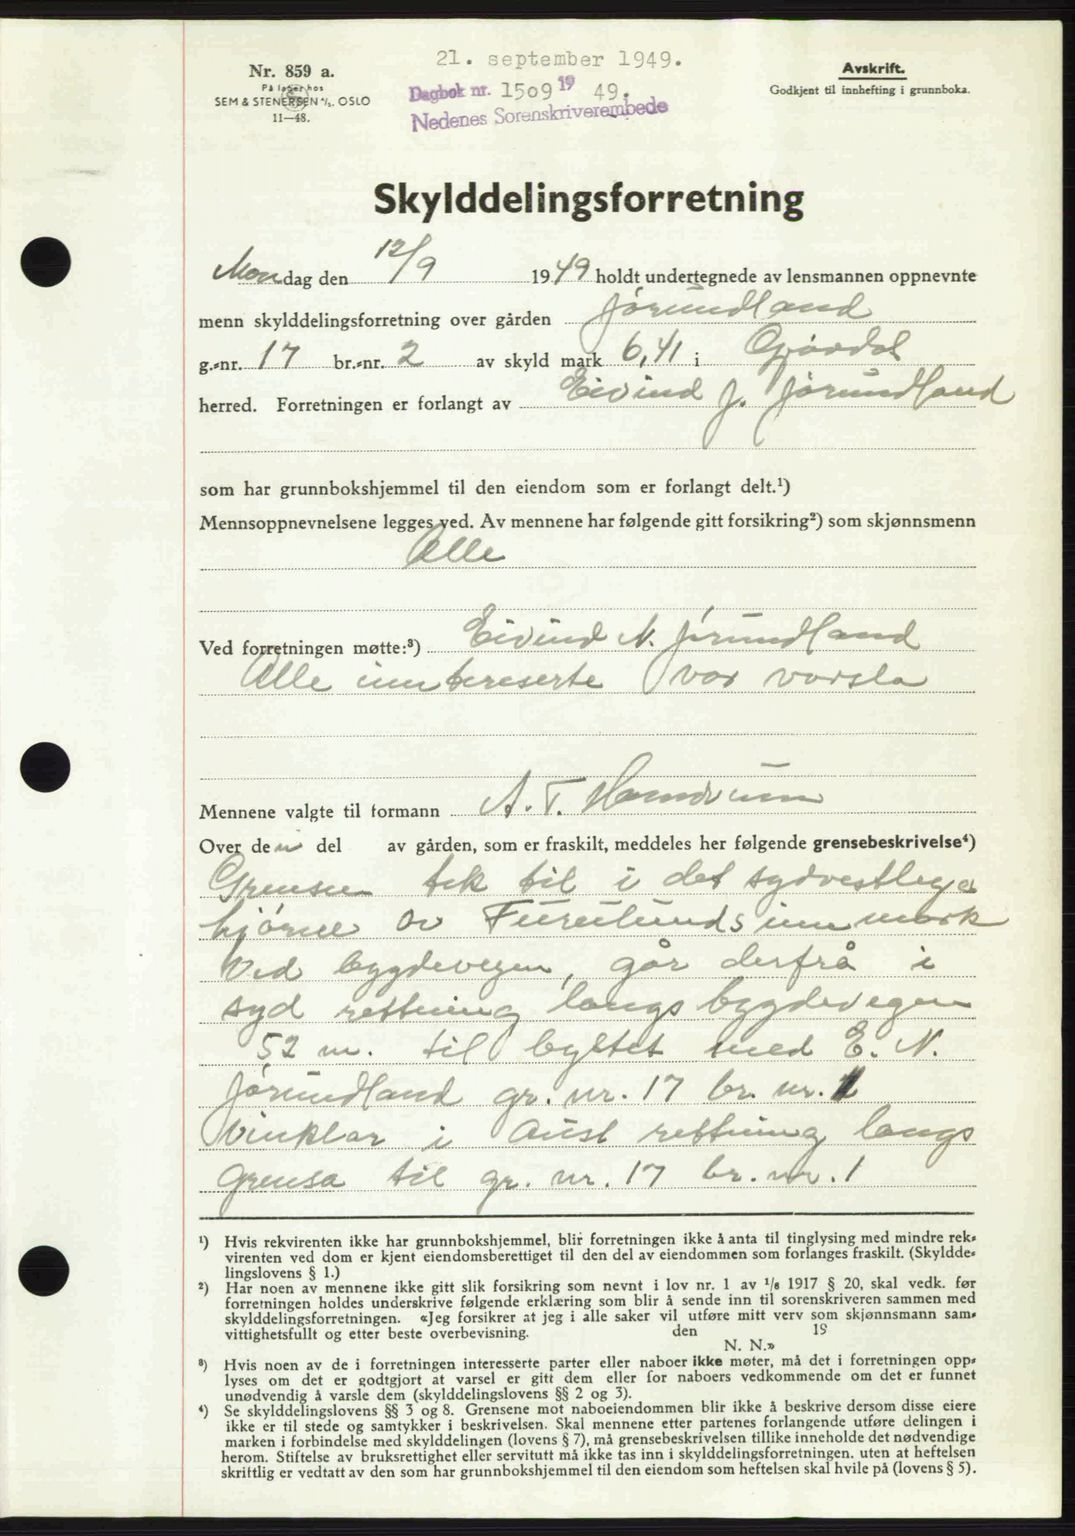 21. september 1949.
Nr. 859 a.
På lager hos
SEM & STENERSEN A/S. OSLO
11—48.
Dagbok nr. 1509 19 49.
Nedenes Sorenskriverembede
Avskrift.
Godkjent til innhefting i grunnboka.
Skylddelingsforretning
Mondag den 12/9 1949 holdt undertegnede av lensmannen oppnevnte
menn skylddelingsforretning over gården Jørundland
g.-nr. 17 br.-nr. 2 av skyld mark 6,41 i Gjøvdal
herred. Forretningen er forlangt av Eivind J. Jørundland
som har grunnbokshjemmel til den eiendom som er forlangt delt.¹)
Mennsoppnevnelsene legges ved. Av mennene har følgende gitt forsikring²) som skjønnsmenn
Alle
Ved forretningen møtte:³) Eivind N. Jørundland
Alle inntereserte var varsla
Mennene valgte til formann A. T. Homdrum
Over den del av gården, som er fraskilt, meddeles her følgende grensebeskrivelse⁴)
Grensen tek til i det sydvestlege
hjørne av Furulunds innmark
ved bygdevegen, går derfrå i
syd rettning langs bygdevegen
52 m. til byttet med E. N.
Jørundland gr. nr. 17 br. nr. 1
vinklar i aust rettning langs
grensa til gr. nr. 17 br. nr. 1
¹) Hvis rekvirenten ikke har grunnbokshjemmel, blir forretningen ikke å anta til tinglysing med mindre rek-
virenten ved dom er kjent eiendomsberettiget til den del av eiendommen som forlanges fraskilt. (Skyldde-
lingslovens § 1.)
²) Har noen av mennene ikke gitt slik forsikring som nevnt i lov nr. 1 av 1/6 1917 § 20, skal vedk. før
forretningen holdes underskrive følgende erklæring som blir å sende inn til sorenskriveren sammen med
skylddelingsforretningen. «Jeg forsikrer at jeg i alle saker vil utføre mitt verv som skjønnsmann sam-
vittighetsfullt og etter beste overbevisning. den 19
N. N.»
³) Hvis noen av de i forretningen interesserte parter eller naboer ikke møter, må det i forretningen opp-
lyses om det er godtgjort at varsel er gitt dem eller for naboers vedkommende om det er funnet
unødvendig å varsle dem (skylddelingslovens §§ 2 og 3).
⁴) Se skylddelingslovens §§ 3 og 8. Grensene mot naboeiendommen blir ikke å beskrive dersom disse eiere
ikke er til stede og samtykker i beskrivelsen. Skal mennene etter partenes forlangende utføre delingen i
marken i forbindelse med skylddelingen (lovens § 7), må grensebeskrivelsen tillike inneholde det nødvendige
herom. Stiftelse av bruksrettighet eller servitutt må ikke tas inn i skylddelingsforretningen, uten at heftelsen
skriftlig er vedtatt av den som har grunnbokshjemmel til den eiendom som heftelsen skal hvile på (lovens § 5).